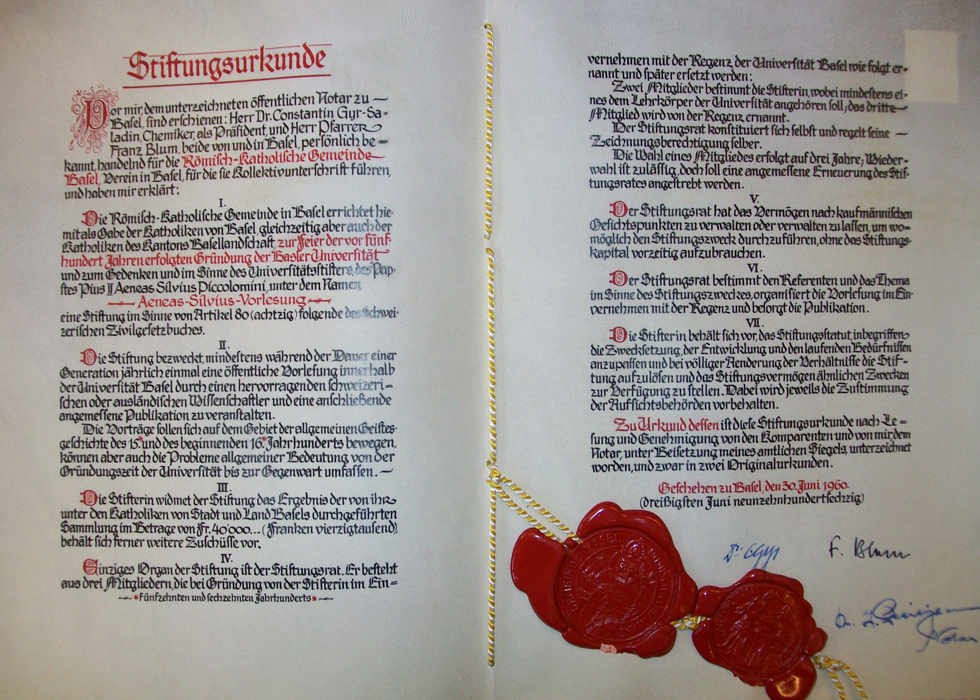 Stiftungsurkunde
Vor mir dem unterzeichneten öffentlichen Notar zu
Basel, sind erschienen: Herr Dr. Constantin Gyr-Sa-
ladin, Chemiker, als Präsident, und Herr Pfarrer
Franz Blum, beide von und in Basel, persönlich be-
kannt, handelnd für die Römisch-Katholische Gemeinde
Basel, Verein in Basel, für die sie Kollektivunterschrift führen,
und haben mir erklärt:
I.
Die Römisch-Katholische Gemeinde in Basel errichtet hie-
mit als Gabe der Katholiken von Basel, gleichzeitig aber auch der
Katholiken des Kantons Basellandschaft, zur Feier der vor fünf-
hundert Jahren erfolgten Gründung der Basler Universität
und zum Gedenken und im Sinne des Universitätsstifters, des Pap-
stes Pius II Aeneas Silvius Piccolomini, unter dem Namen
Aeneas-Silvius-Vorlesung
eine Stiftung im Sinne von Artikel 80 (achtzig) folgende des Schwei-
zerischen Zivilgesetzbuches.
II.
Die Stiftung bezweckt, mindestens während der Dauer einer
Generation jährlich einmal eine öffentliche Vorlesung innerhalb
der Universität Basel durch einen hervorragenden schweizeri-
schen oder ausländischen Wissenschaftler und eine anschließende
angemessene Publikation zu veranstalten.
Die Vorträge sollen sich auf dem Gebiet der allgemeinen Geistes-
geschichte des 15.* und des beginnenden 16.* Jahrhunderts bewegen,
können aber auch die Probleme allgemeiner Bedeutung von der
Gründungszeit der Universität bis zur Gegenwart umfassen.
III.
Die Stifterin widmet der Stiftung das Ergebnis der von ihr
unter den Katholiken von Stadt und Land Basels durchgeführten
Sammlung im Betrage von Fr. 40'000... (Franken vierzigtausend),
behält sich ferner weitere Zuschüsse vor.
IV.
Einziges Organ der Stiftung ist der Stiftungsrat. Er besteht
aus drei Mitgliedern, die bei Gründung von der Stifterin im Ein-
* fünfzehnten und sechzehnten Jahrhunderts *
vernehmen mit der Regenz der Universität Basel wie folgt er-
nannt und später ersetzt werden:
Zwei Mitglieder bestimmt die Stifterin, wobei mindestens ei-
nes dem Lehrkörper der Universität angehören soll; das dritte
Mitglied wird von der Regenz ernannt.
Der Stiftungsrat konstituiert sich selbst und regelt seine
Zeichnungsberechtigung selber.
Die Wahl eines Mitgliedes erfolgt auf drei Jahre; Wieder-
wahl ist zulässig, doch soll eine angemessene Erneuerung des Stif-
tungsrates angestrebt werden.
V.
Der Stiftungsrat hat das Vermögen nach kaufmännischen
Gesichtspunkten zu verwalten oder verwalten zu lassen, um wo-
möglich den Stiftungszweck durchzuführen, ohne das Stiftungs-
kapital vorzeitig aufzubrauchen.
VI.
Der Stiftungsrat bestimmt den Referenten und das Thema
im Sinne des Stiftungszweckes, organisiert die Vorlesung im Ein-
vernehmen mit der Regenz und besorgt die Publikation.
VII.
Die Stifterin behält sich vor, das Stiftungsstatut, inbegriffen
die Zwecksetzung, der Entwicklung und den laufenden Bedürfnissen
anzupassen und bei völliger Aenderung der Verhältnisse die Stif-
tung aufzulösen und das Stiftungsvermögen ähnlichen Zwecken
zur Verfügung zu stellen. Dabei wird jeweils die Zustimmung
der Aufsichtsbehörden vorbehalten.
Zu Urkund dessen ist diese Stiftungsurkunde nach Le-
sung und Genehmigung von den Komparenten und von mir dem
Notar, unter Beisetzung meines amtlichen Siegels, unterzeichnet
worden, und zwar in zwei Originalurkunden.
Geschehen zu Basel, den 30. Juni 1960.
(dreißigsten Juni neunzehnhundertsechzig)
Dr. C Gyr
F. Blum